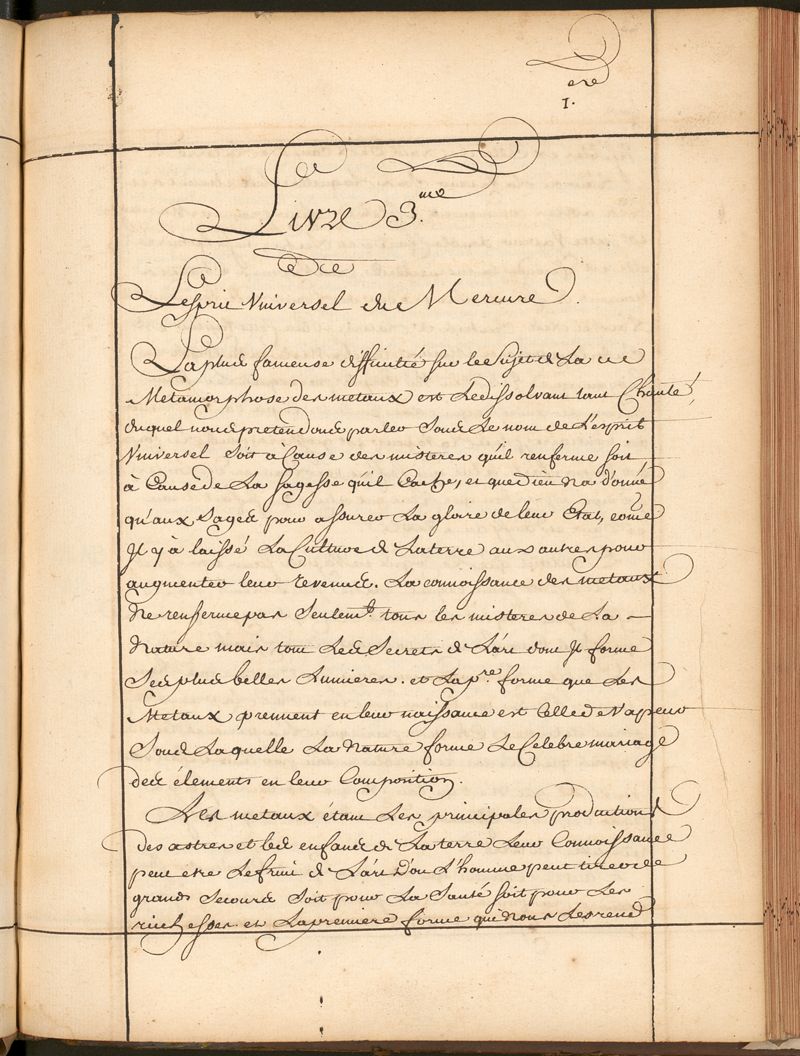 ere
1.
Livre 3.me
De
L'esprit Vniversel du Mercure.
La plus fameuse difficulté sur le Sujet de La
Metamorphose des metaux est Le dissolvant tant Chanté,
duquel nous pretendons parler Sous Le nom de L'esprit
Vniversel Soit à Cause des misteres qu'il renferme soit
à Cause de La sagesse qu'il Cache, et que dieu na donné
qu'aux Sages pour assurer La gloire de leur Etat, come
Il y à laissé La Culture de La terre aux autres pour
augmenter leur revenus. La connoissance des metaux
Ne renferme pas Seulemt. tous les misteres de La
Nature mais tous Les Secrets de L'art dont Il forme
Ses plus belles Lumieres. et La pre. forme que Les
Metaux prennent en leur naissance est Celle de Vapeur
Sous Laquelle La Nature forme Le Celebre mariage
des élements en leur Composition.
Les metaux étant Les principales productions
des astres et les enfans de La terre Leur Connoissance
peut etre Le fruit de L'art D'ou L'homme peut tirer de
grands Secours Soit pour La Santé soit pour Les
richesses. et La premiere forme qui Nous Les rend